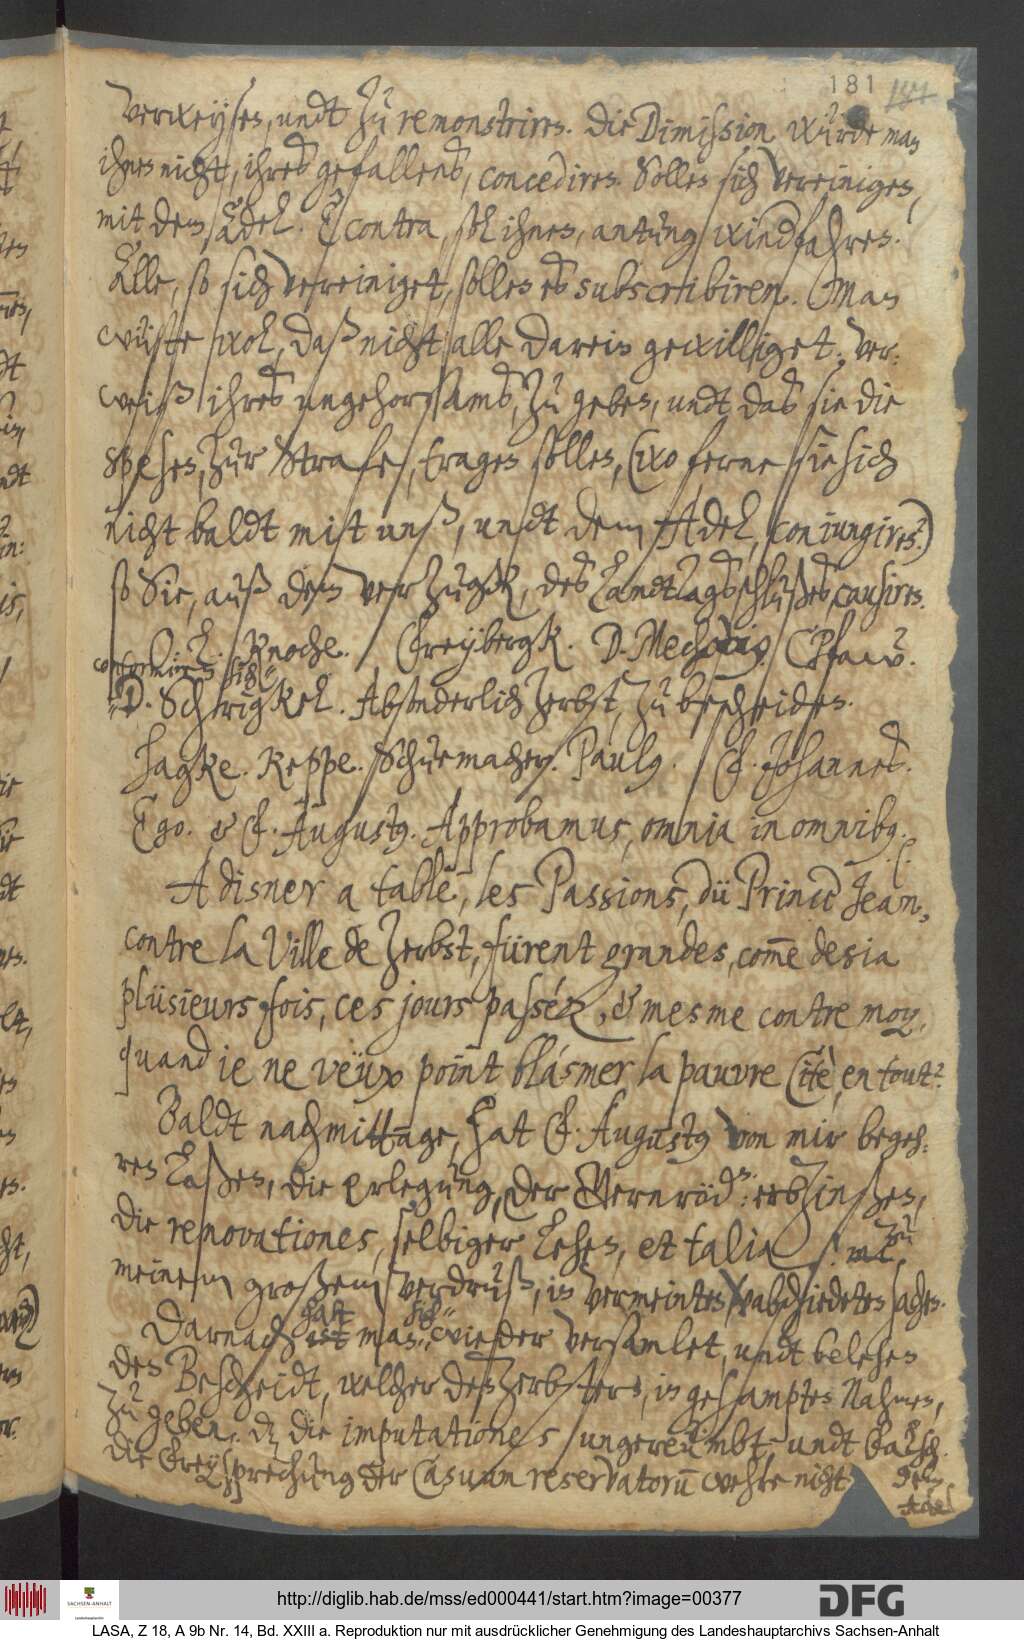 181
verweysen, undt zu remonstriren. Die Dimission würde man
ihnen nicht, ihres gefallens, concediren. Sollen sich vereinigen,
mit dem Adel. E contra, sol ihnen, antung wiedfahren.
Alle, so sich vereiniget, sollen es subscribiren. Man
wüste wol, daß nicht alle darein gewilliget. Ver-
weiß ihres ungehorsams, zu geben, undt das sie die
spesen, zur Strafe, tragen sollen, (wo ferne sie sich
nicht baldt mit unß, undt dem Adel, conjungiren.)
so Sie, auß dem verzugk, des Landtagsschlußes, causiren.
Knoche. Freybergk. D. Mechovius. C Pfaw.
conformiren sich
D. Schrigkel. Absonderlich Zerbst, zu bescheiden.
Hagke. Reppe. Schuemacher. Paulg. F. Johannes.
Ego. & F. Augustg. Approbamus, omnia in omnibg.
A disner a table, les Passions, dü Prince Jean,
contre la Ville de Zerbst, fürent grandes, com̅e desia
plüsieurs fois, ces jours passéz, & mesme contre moy,
quand ie ne veüx point blasmer, la pauvre Citè, en tout.
Baldt nachmittage, hat F. Augustg von mir begeh-
ren laßen, die erlegung, der Gernröd: erbzinßen,
die renovationes, selbiger Lehen, et talia zu
meinem großem verdruß, in vermeinten verabschiedeten sachen.
Darnach hatt man sich wieder versamlet, undt belesen
den Bescheidt, welcher den Zerbstern, in gesampten Nahmen,
zu geben. die imputationes ungereümbt, undt falsch.
die Freysprechung der Casuum reservatorum̅ wehre nicht
Adel
http://diglib.hab.de/mss/ed000441/start.htm?image=00377
SACHSEN-ANHALT
Landeshauptarchiv
DFG
LASA, Z 18, A 9b Nr. 14, Bd. XXIII a. Reproduktion nur mit ausdrücklicher Genehmigung des Landeshauptarchivs Sachsen-Anhalt